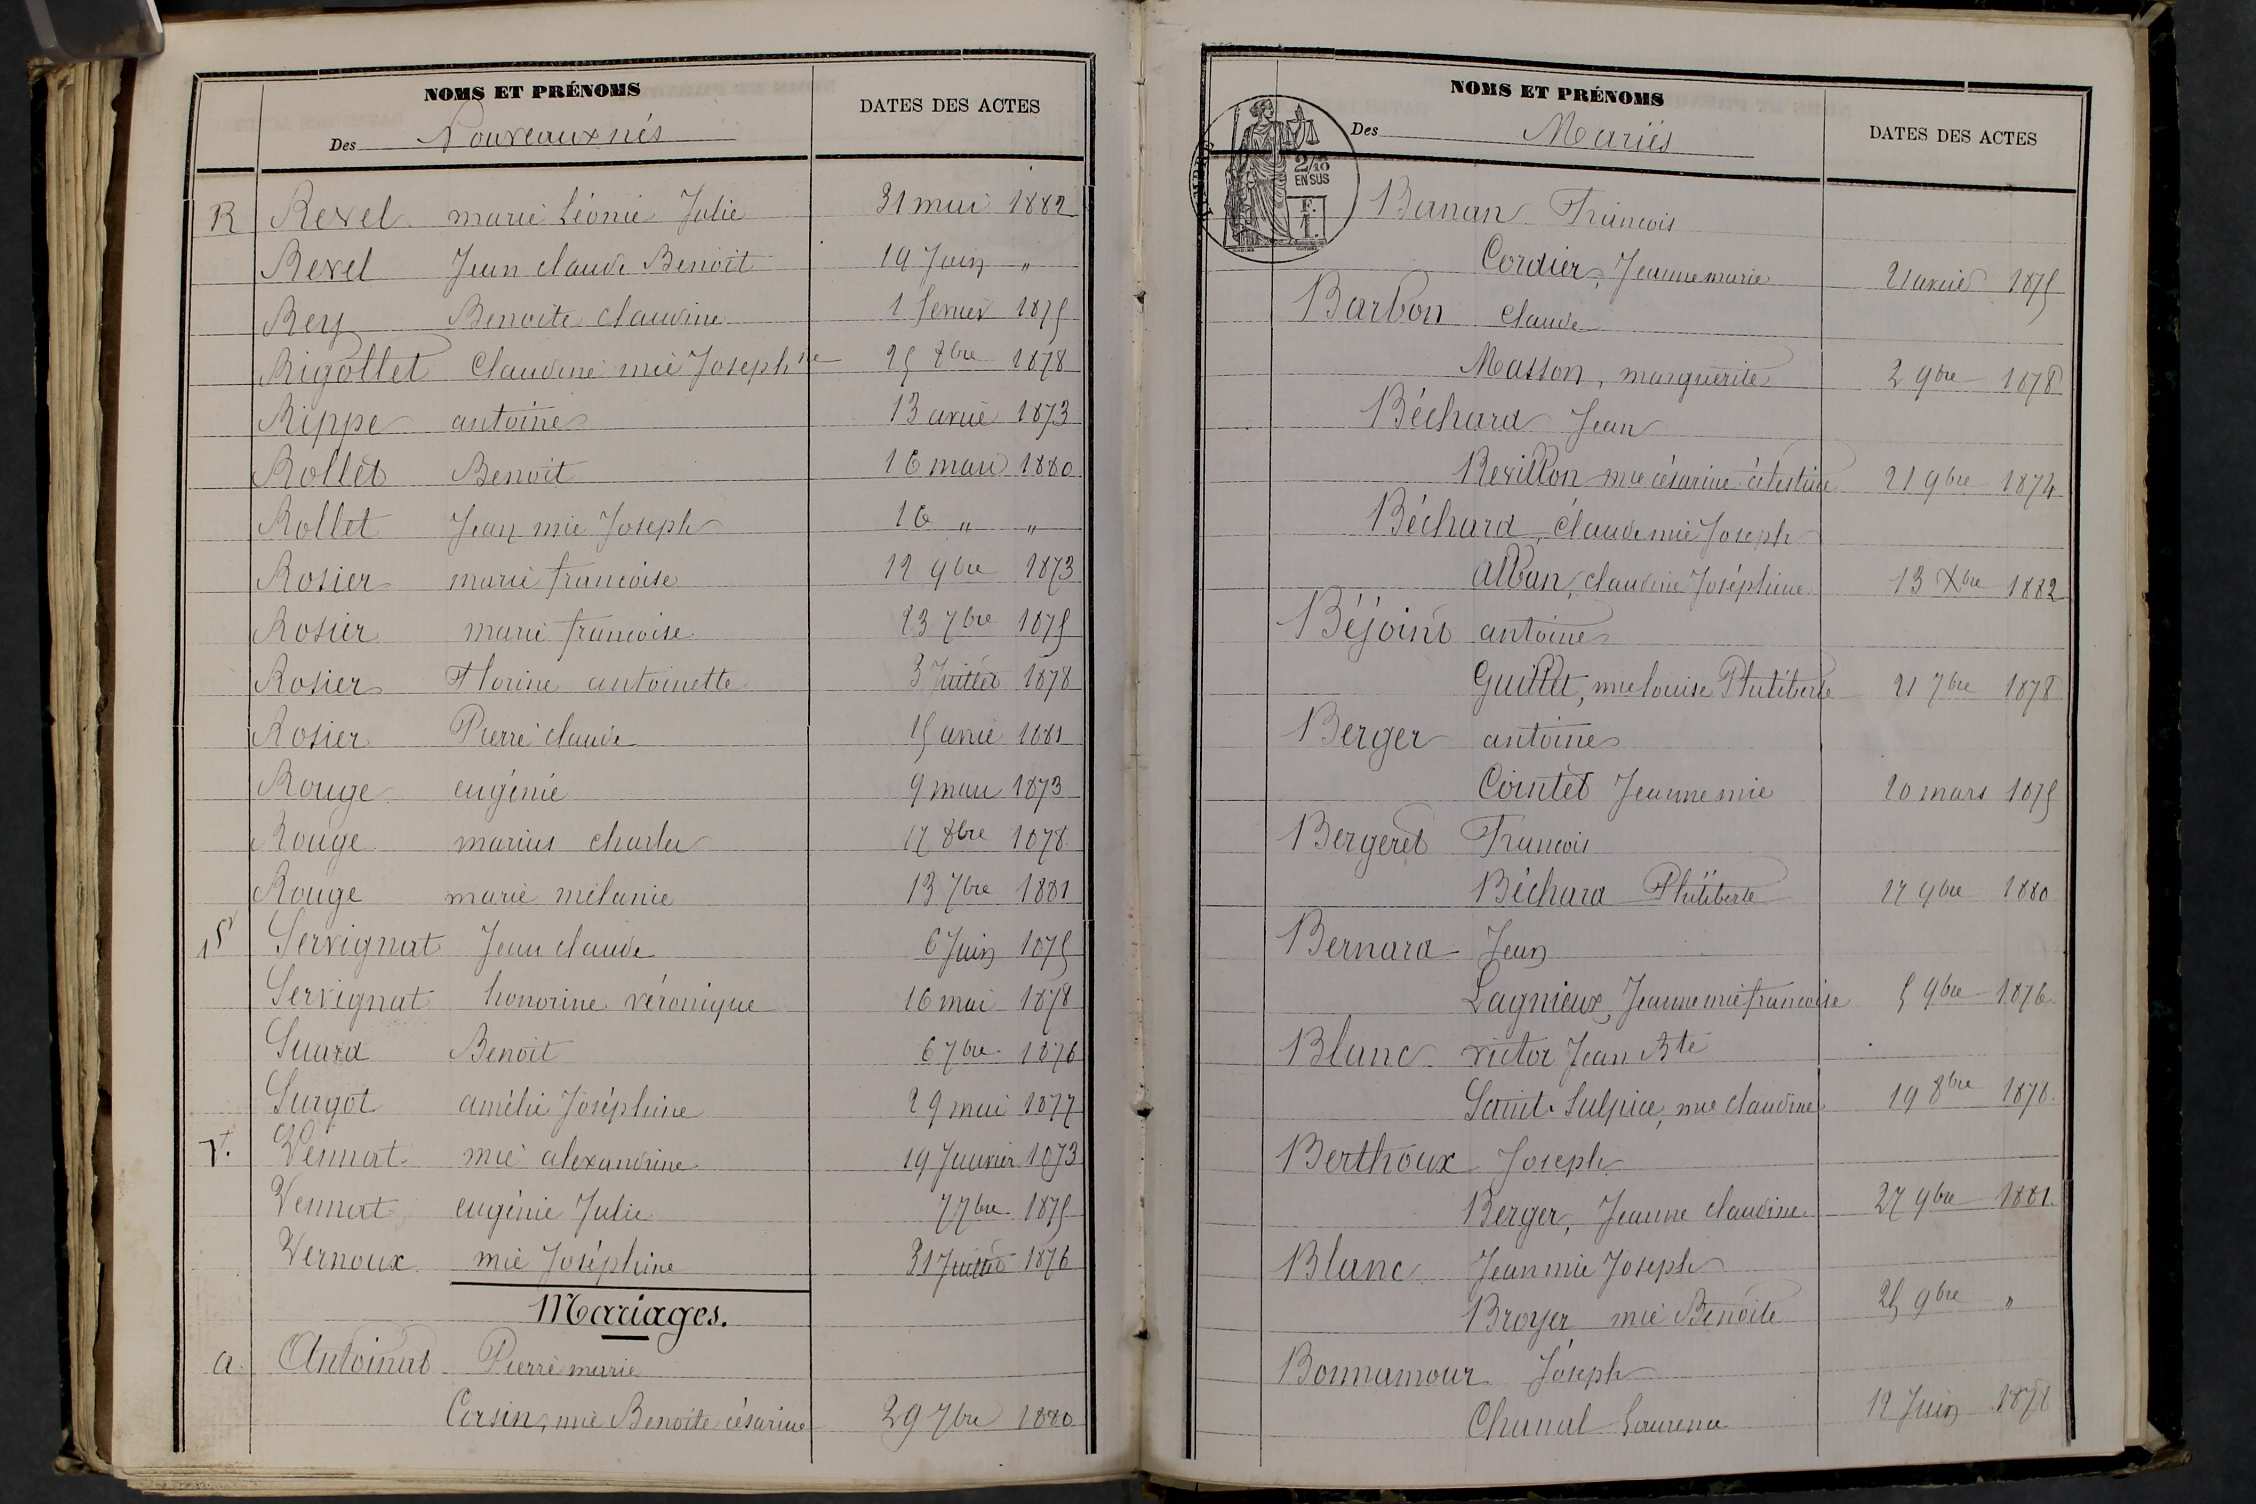 NOMS ET PRÉNOMS
DATES DES ACTES
Des Nouveaux nés
R Revel marie Léonie Julie 31 mai 1882
Revel Jean claude Benoit 19 Juin "
Rey Benoite claudine 1 fevrier 1875
Rigollet Claudine mie Josephine 25 8bre 1878
Rippe antoine 13 avril 1873
Rollet Benoit 16 mars 1880
Rollet Jean mie Joseph 16 " "
Rosier marie francoise 12 9bre 1873
Rosier marie francoise 23 7bre 1875
Rosier Florine antoinette 3 Juillet 1878
Rosier Pierre claude 15 avril 1881
Rouge eugénie 9 mars 1873
Rouge marius charles 17 8bre 1878
Rouge marie mélanie 13 7bre 1881
S Servignat Jean claude 6 Juin 1875
Servignat honorine véronique 16 mai 1878
Suard Benoit 6 7bre 1876
Surgot amélie Joséphine 29 mai 1877
V. Vennat mie alexandrine 19 Janvier 1873
Vennat eugénie Julie 7 7bre 1875
Vernoux mie Joséphine 31 Juillet 1876
Mariages.
a Antoinat Pierre marie
Corsin, mie Benoite césarine 29 7bre 1880
NOMS ET PRÉNOMS
DATES DES ACTES
Des Mariés
2/10
EN SUS
F.
1.
Banan Francois
Cordier, Jeanne marie 21 avril 1875
Barbon Claude
Masson, marguerite 2 9bre 1878
Béchard Jean
Revillon mie césarine célestine 21 9bre 1874
Béchard, claude mie Joseph
Alban, claudine Joséphine 13 Xbre 1882
Béjoint antoine
Guillet, mie louise Philiberte 21 7bre 1878
Berger antoine
Cointet Jeanne mie 20 mars 1875
Bergeret Francois
Béchard Philiberte 17 9bre 1880
Bernard Jean
Lagnieux, Jeanne mie francoise 5 9bre 1876
Blanc victor Jean Bte
Saint-Sulpice, mie claudine 19 8bre 1876
Berthoux Joseph
Berger, Jeanne claudine 27 9bre 1881
Blanc Jean mie Joseph
Broyer mie Benoite 25 9bre "
Bonnamour Joseph
Chanal Laurence 12 Juin 1878